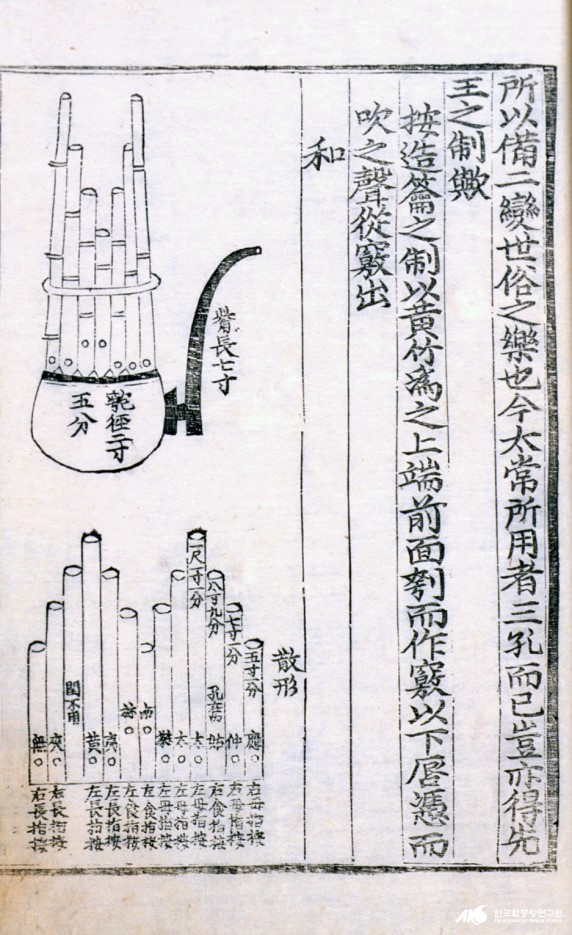 所以備二變世俗之樂也今太常所用者三孔而已豈亦得先
王之制歟
按造籥之制以黃竹爲之上端前面刳而作竅以下唇憑而
吹之聲從竅出
和
觜長七寸
匏徑二寸
五分
散形
七寸一分
八寸九分
一尺一寸一分
應
仲
姑
太
太
南
林
黃
夾
無
右母指按
右母指按
右食指按
左母指按
左母指按
左母指按
左食指按
左食指按
左長指按
左長指按
右長指按
右長指按
한국학중앙연구원